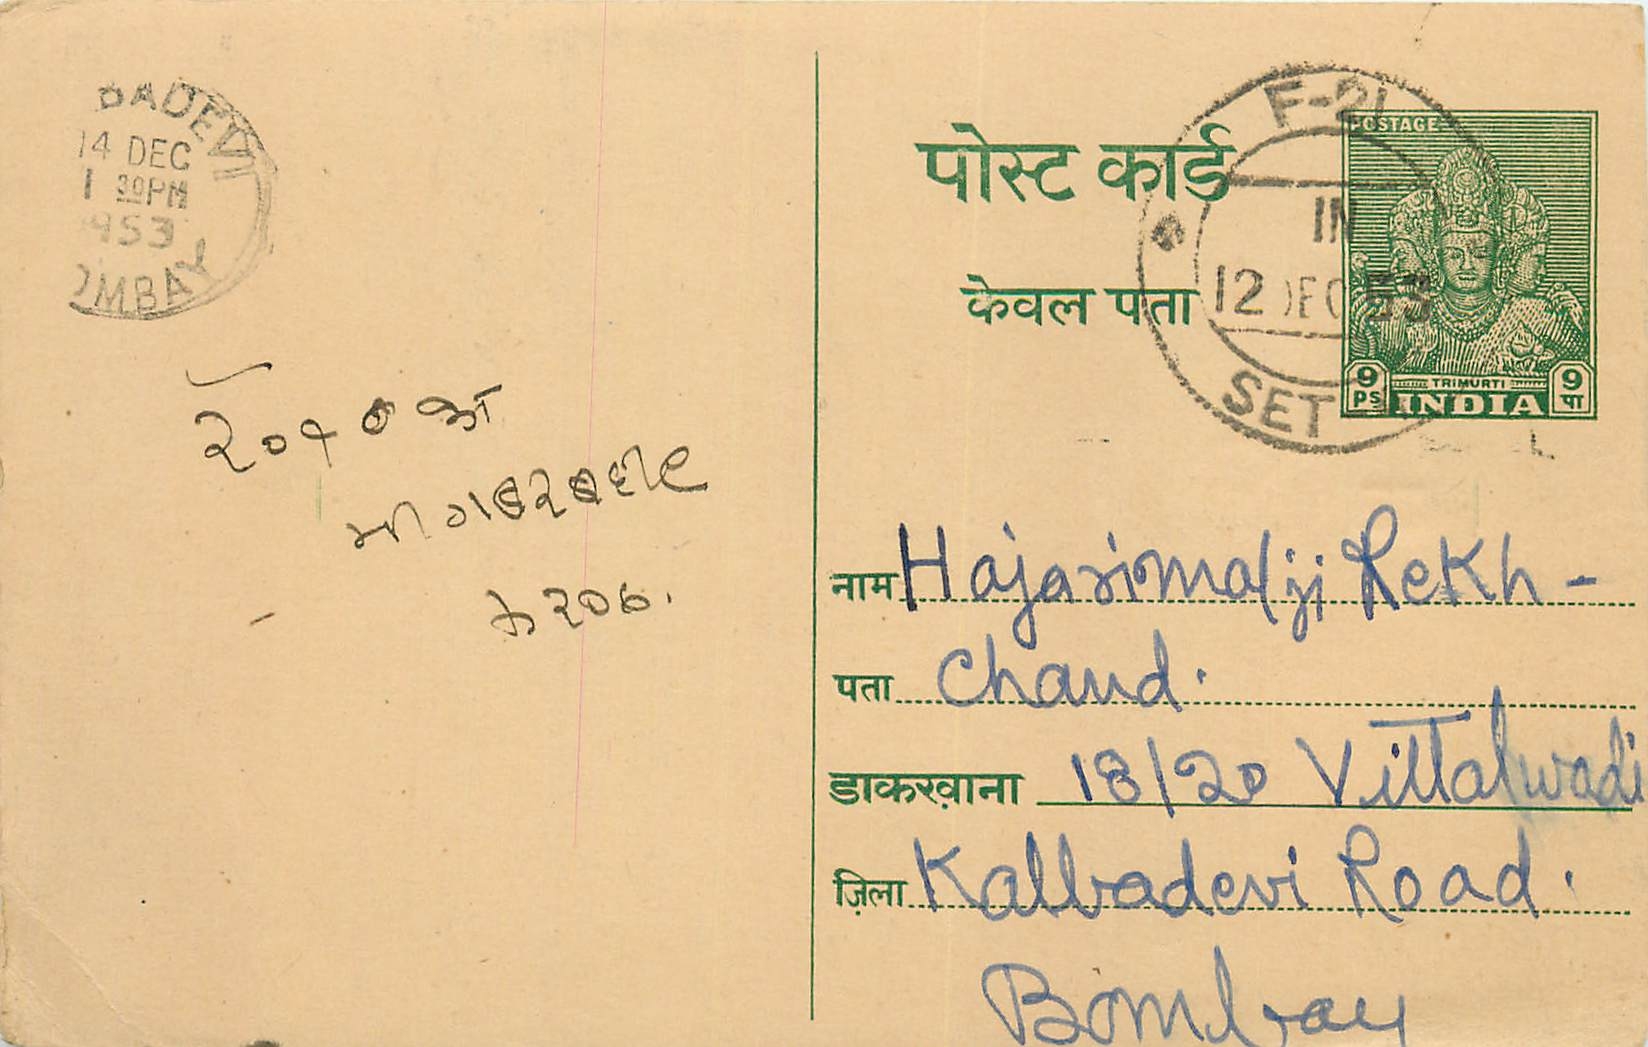 BADEVI
14 DEC
1 30PM
1953
OMBAY
पोस्ट कार्ड
केवल पता
F-21
IN
12 DEC 53
SET
POSTAGE
9 PS
TRIMURTI
INDIA
9 पा
नाम Hajarimalji Rekh-
पता Chand.
डाकखाना 18/20 Vittalwadi
ज़िला Kalbadevi Road.
Bombay